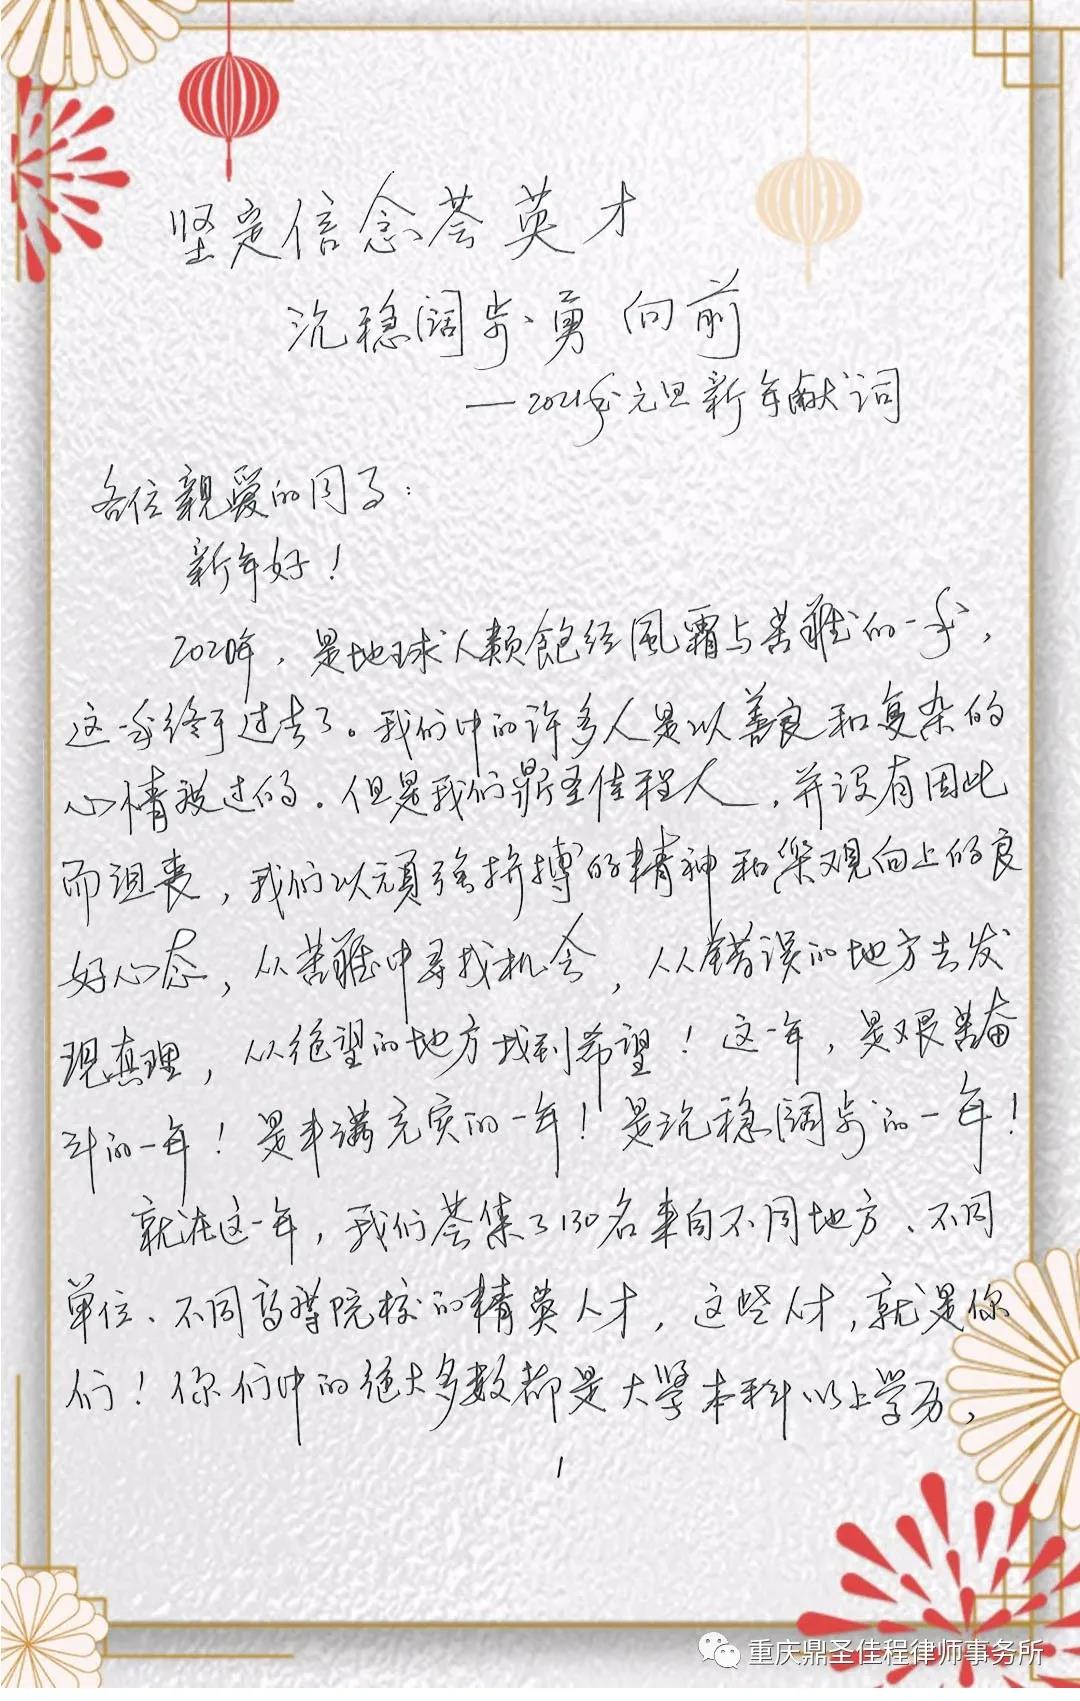 坚定信念荟英才
沉稳阔步勇向前
—2021年元旦新年献词
各位親愛的同事:
新年好!
2020年,是地球人類飽经風霜与苦難的一年,
这一年终于过去了。我们中的许多人是以善良和复杂的
心情渡过的。但是我们鼎圣佳程人,并没有因此
而沮丧,我们以顽强拚搏的精神和樂观向上的良
好心态,从苦難中寻找机会,从错误的地方去发
现真理,从绝望的地方找到希望!这一年,是艰苦奋
斗的一年!是丰满充实的一年!是沉稳阔步的一年!
就在这一年,我们荟集了130名来自不同地方、不同
单位、不同高等院校的精英人才,这些人才,就是你
们!你们中的绝大多数都是大學本科以上学历,
1
重庆鼎圣佳程律师事务所